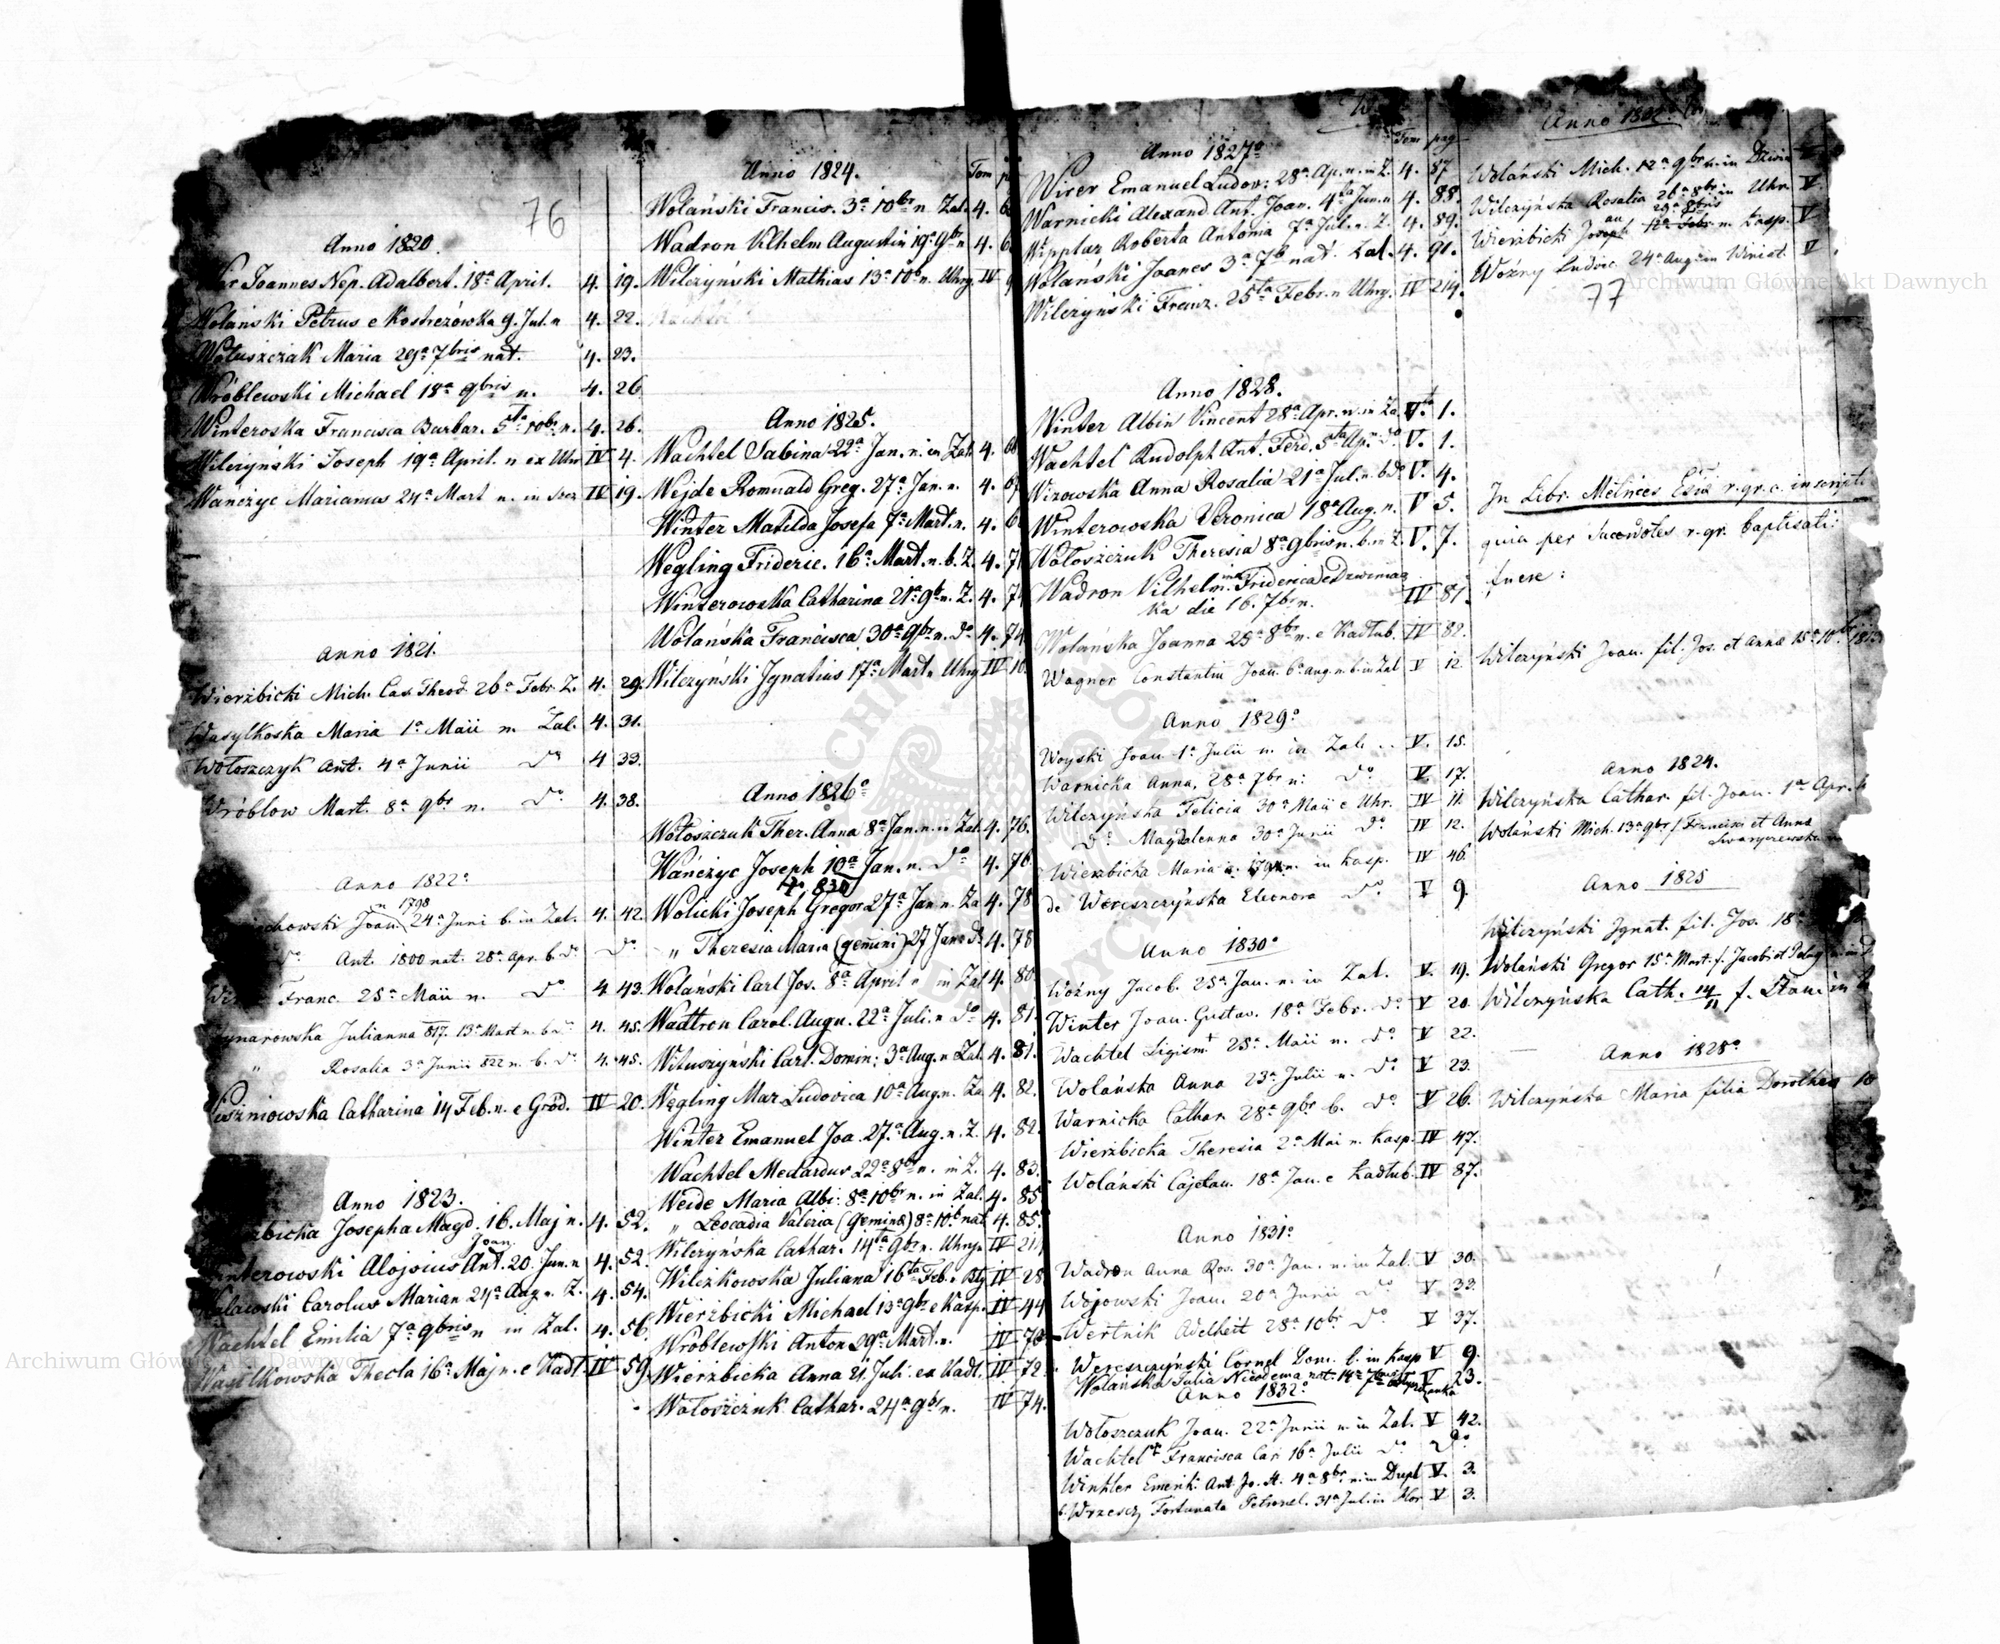 76
Anno 1820.
Joannes Nep. Adalbert. 18ª April. 4. 19.
Wolański Petrus e Kostrezówka 9. Jul. n 4. 22.
Wołuszczak Maria 29ª 7bris nat. 4. 23.
Wróblewski Michael 18ª 9bris n. 4. 26
Winteroska Francisca Barbar. 5ta 10br n. 4. 26.
Wilczyński Joseph 19ª April. n ex Uhr IV 4.
Wańczyc Marianus 24ª Mart n. in IV 19.
Anno 1821.
Wierzbicki Mich. Cas. Theod. 26ª Febr. Z. 4. 29.
Wasylkoska Maria 1ª Maii n. Zal. 4. 31.
Wołoszczyk Ant. 4ª Junii do 4 33.
Wróblow Mart. 8ª 9br n. do 4. 38.
Anno 1822º
n 1798
Joan. 24ª Juni b. in Zal. 4. 42.
do Ant. 1800 nat. 28ª Apr. b. do do
Franc. 25ª Maii n. do 4 43.
Julianna 817. 13ª Mart n. b. do 4. 45.
„ Rosalia 3ª Junii 822 n. b. do 4. 45.
Catharina 14 Feb. n. e Gród. IV 20.
Anno 1823.
Josepha Magd. 16. Maj n. 4. 52.
Joan.
Winterowski Alojsius Ant. 20. Jun. n 4. 52.
Carolus Marian 24ª Aug. n. Z. 4. 54.
Wachtel Emilia 7ª 9bris n in Zal. 4. 56.
Wasylkowska Thecla 16ª Maj n. e Kadł. IV 59.
Anno 1824. Tom
Wolański Francis. 3ª 10br n Zal. 4. 6
Wadron Vilhelm Augustin 19ª 9br n 4. 6
Wilczyński Mathias 13ª 10b n. Uhry. IV 9
Anno 1825.
Wachtel Sabina 22ª Jan. n. in Zal. 4. 66
Wejde Romuald Greg. 27ª Jan. n. 4. 67
Winter Matilda Josefa 7ª Mart. n. 4. 6
Wegling Frideric. 16ª Mart. n. b. Z. 4. 7
Winterowska Catharina 21ª 9b n. Z. 4. 7
Wolańska Francisca 30ª 9br n. do 4. 74
Wilczyński Jgnatius 17ª Mart. n Uhry IV 10.
Anno 1826º
Wołoszczuk Ther. Anna 8ª Jan. n. in Zal. 4. 76.
Wańczyc Joseph 10ª Jan. n. do 4. 76
Wolicki Joseph Gregor 27ª Jan n. Za 4. 78
„ Theresia Maria (gemini) 27 Jan n do 4. 78
Wolański Carl Jos. 8ª April n in Zal 4. 80
Wadtron Carol. Augu. 22ª Juli. n do 4. 81.
Wituszyński Carl. Domin: 3ª Aug. n Zal 4. 81.
Węgling Mar Ludovica 10ª Aug. n. Za 4. 82.
Winter Emanuel Joa. 27ª Aug. n. Z. 4. 82.
Wachtel Medardus 22ª 8br n. in Z. 4. 83.
Weide Maria Albi. 8ª 10br n. in Zal. 4. 85
„ Leocadia Valeria (Geminæ) 8ª 10b nat 4. 85.
Wilczyńska Cathar. 14ta 9br n. Uhryn IV 211
Wilczkowska Juliana 16ta Feb. n IV 28
Wierzbicki Michael 13ª 9br e Kasp. IV 44
Wroblewski Anton 29ª Mart. n. IV 70
Wierzbicka Anna 21. Juli. ex Kadł. IV 72.
Wołoszczuk Cathar. 24ª 9br n. IV 74.
Anno 1827º Tom pag
Wirer Emanuel Ludov: 28ª Ap. n. in Z. 4. 87
Warnicki Alexand Ant. Joan. 4ta Jun. n 4. 88.
Wipplar Roberta Antonia 7ª Jul. n. Z. 4. 89.
Wolański Joanes 3ª 7b nat. Zal. 4. 91.
Wilczyński Franz. 25ta Febr. n Uhry. IV 214.
Anno 1828.
Winter Albin Vincent 28ª Apr. n. in Za Vto 1.
Wachtel Rudolph Ant. Ferd. 5ta Ap. n do V. 1.
Wizowska Anna Rosalia 21ª Jul. n. b do V. 4.
Winterowska Veronica 18ª Aug. n. V 5.
Wołoszczuk Theresia 8ª 9bris n. b. in Z. V. 7.
Wadron Vilhelmina Friderica e Dzwiniacz
ka die 16. 7br n. IV 81.
Wolanska Joanna 25ª 8br n. e Kadłub. IV 82.
Wagner Constantin Joan. 6ª Aug n. b. in Zal V 12
Anno 1829º
Woyski Joan 1ª Julii n. in Zal. .. V. 15.
Warnicka Anna, 28ª 7br n: do V. 17.
Wilczyńska Felicia 30ª Maii e Uhr. IV 11.
do. Magdalenna 30ª Junii do IV 12.
Wierzbicka Maria n. in Kasp. IV 46.
de Wereszczyńska Eleonora do V 9.
Anno 1830º
Woźny Jacob. 25ª Jan. n. in Zal. V. 19.
Winter Joan. Gustav. 18ª Febr. do V 20.
Wachtel Sigism 28ª Maii n. do V 22.
Wolańska Anna 23ª Julii n. do V 23.
Warnicka Cathar. 28ª 9br b. do V 26.
Wierzbicka Theresia 2ª Mai n. Kasp. IV 47.
Wolański Cajetan. 18ª Jan. e Kadłub. IV 87.
Anno 1831º
Wadron Anna Ros. 30ª Jan. n. in Zal. V 30.
Wojowski Joan. 20ª Junii do V 33.
Wertnik Adelheit 28ª 10br do V 37.
Wereszczyński Cornel Dom. b. in Kasp V 9.
Wolańska Julia Nicodema nat. 14ª V 23.
Anno 1832º
Wołoszczuk Joan. 22ª Junii n. in Zal. V 42.
Wachtel Francisca Car. 16ª Julii do do
Winkler Emerik. Ant. Jo. A. 4ª 8br. n. in Dupl V. 3.
Wrzescz Fortunata Petronel. 31ª Jul. in Hor V 3.
Wolański Mich. 12ª 9br n. in Dzwin
Wilczyńska Rosalia 26ª 8br in Uhr. V
Wierzbicki Joseph n. Kasp. V
Woźny Ludvic. 24ª Aug. in Winiat. V
77
In Libr. Metrices Ecclae r. gr. c. inscripti
quia per Sacerdotes r. gr. baptisati
fuere:
Wilczyński Joan. fil. Jos. et Annæ 15ª 10br 1823
Anno 1824.
Wilczyńska Cathar. fil. Joan. 1ª Apr.
Wolański Mich. 13ª 9br f. Francisci et Anna
Swaryczewska
Anno 1825
Wilczyński Jgnat. fil. Jos. 18
Wolański Gregor 15ª Mart. f. Jacobi et Pelag
Wilczyńska Cath. 14/11 f. Stani
Anno 1828º
Wilczyńska Maria filia Dorothea 10
Archiwum Główne Akt Dawnych
Archiwum Główne Akt Dawnych